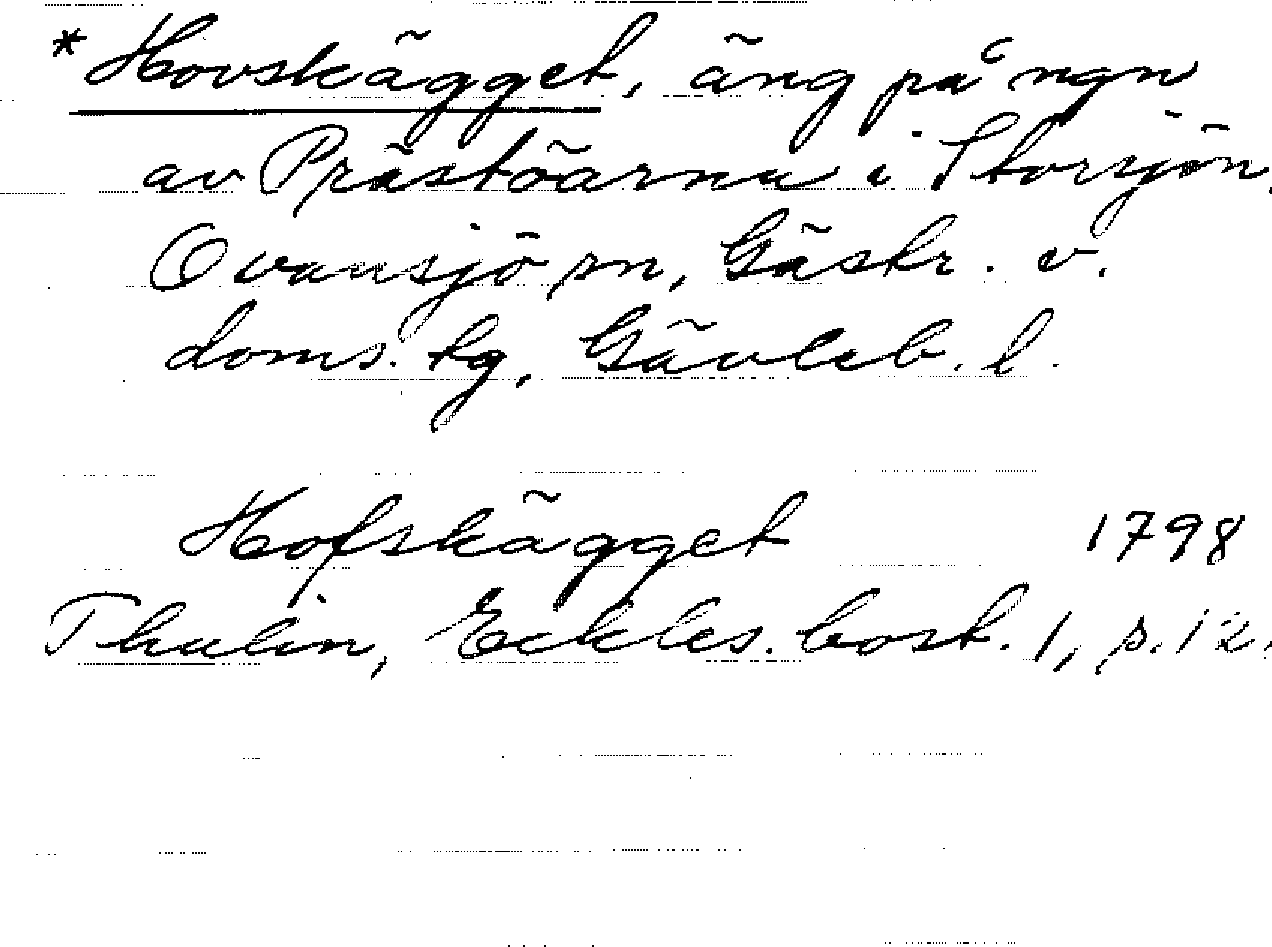 * Hovskägget, äng på ngn
av Prästöarna i Storsjön,
Ovansjö sn, Gästr. v.
doms. tg, Gävleb. l.
Hofskägget 1798
Thulin, Eckles. bost. 1, s. 12.